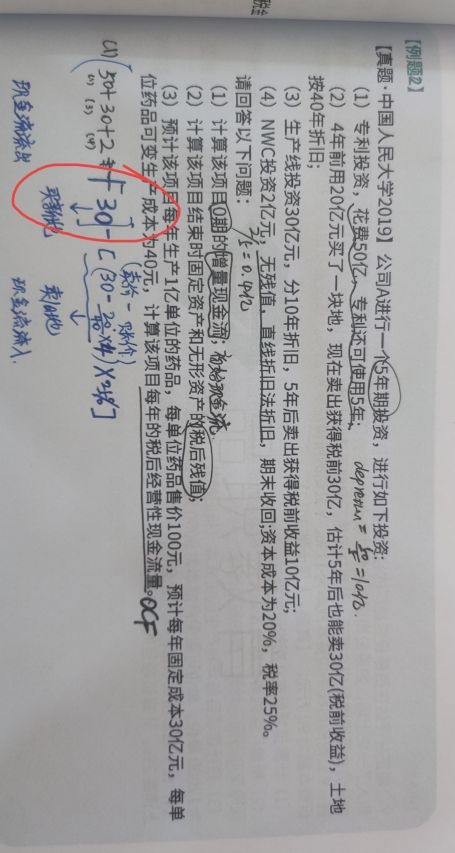 税金
【例题2】
【真题·中国人民大学2019】公司A进行一个5年期投资，进行如下投资：
（1）专利投资，花费50亿，专利还可使用5年； depreciation = 50/5 = 10亿.
（2）4年前用20亿元买了一块地，现在卖出获得税前30亿，估计5年后也能卖30亿(税前收益)，土地
按40年折旧；
（3）生产线投资30亿元，分10年折旧，5年后卖出获得税前收益10亿元；
（4）NWC投资2亿元，无残值，直线折旧法折旧，期末收回;资本成本为20%，税率25%。
请回答以下问题： = 0.4亿
（1）计算该项目0期的增量现金流； 初始现金流.
（2）计算该项目结束时固定资产和无形资产的税后残值；
（3）预计该项目每年生产1亿单位的药品，每单位药品售价100元，预计每年固定成本30亿元，每单
位药品可变生产成本为40元，计算该项目每年的税后经营性现金流量。OCF
(卖价 - 账价)
(1) 50+30+2 + [30] - [(30 - ) × 25%]
(1) (3) (4)
卖的地
现金流流出
现金流流入.